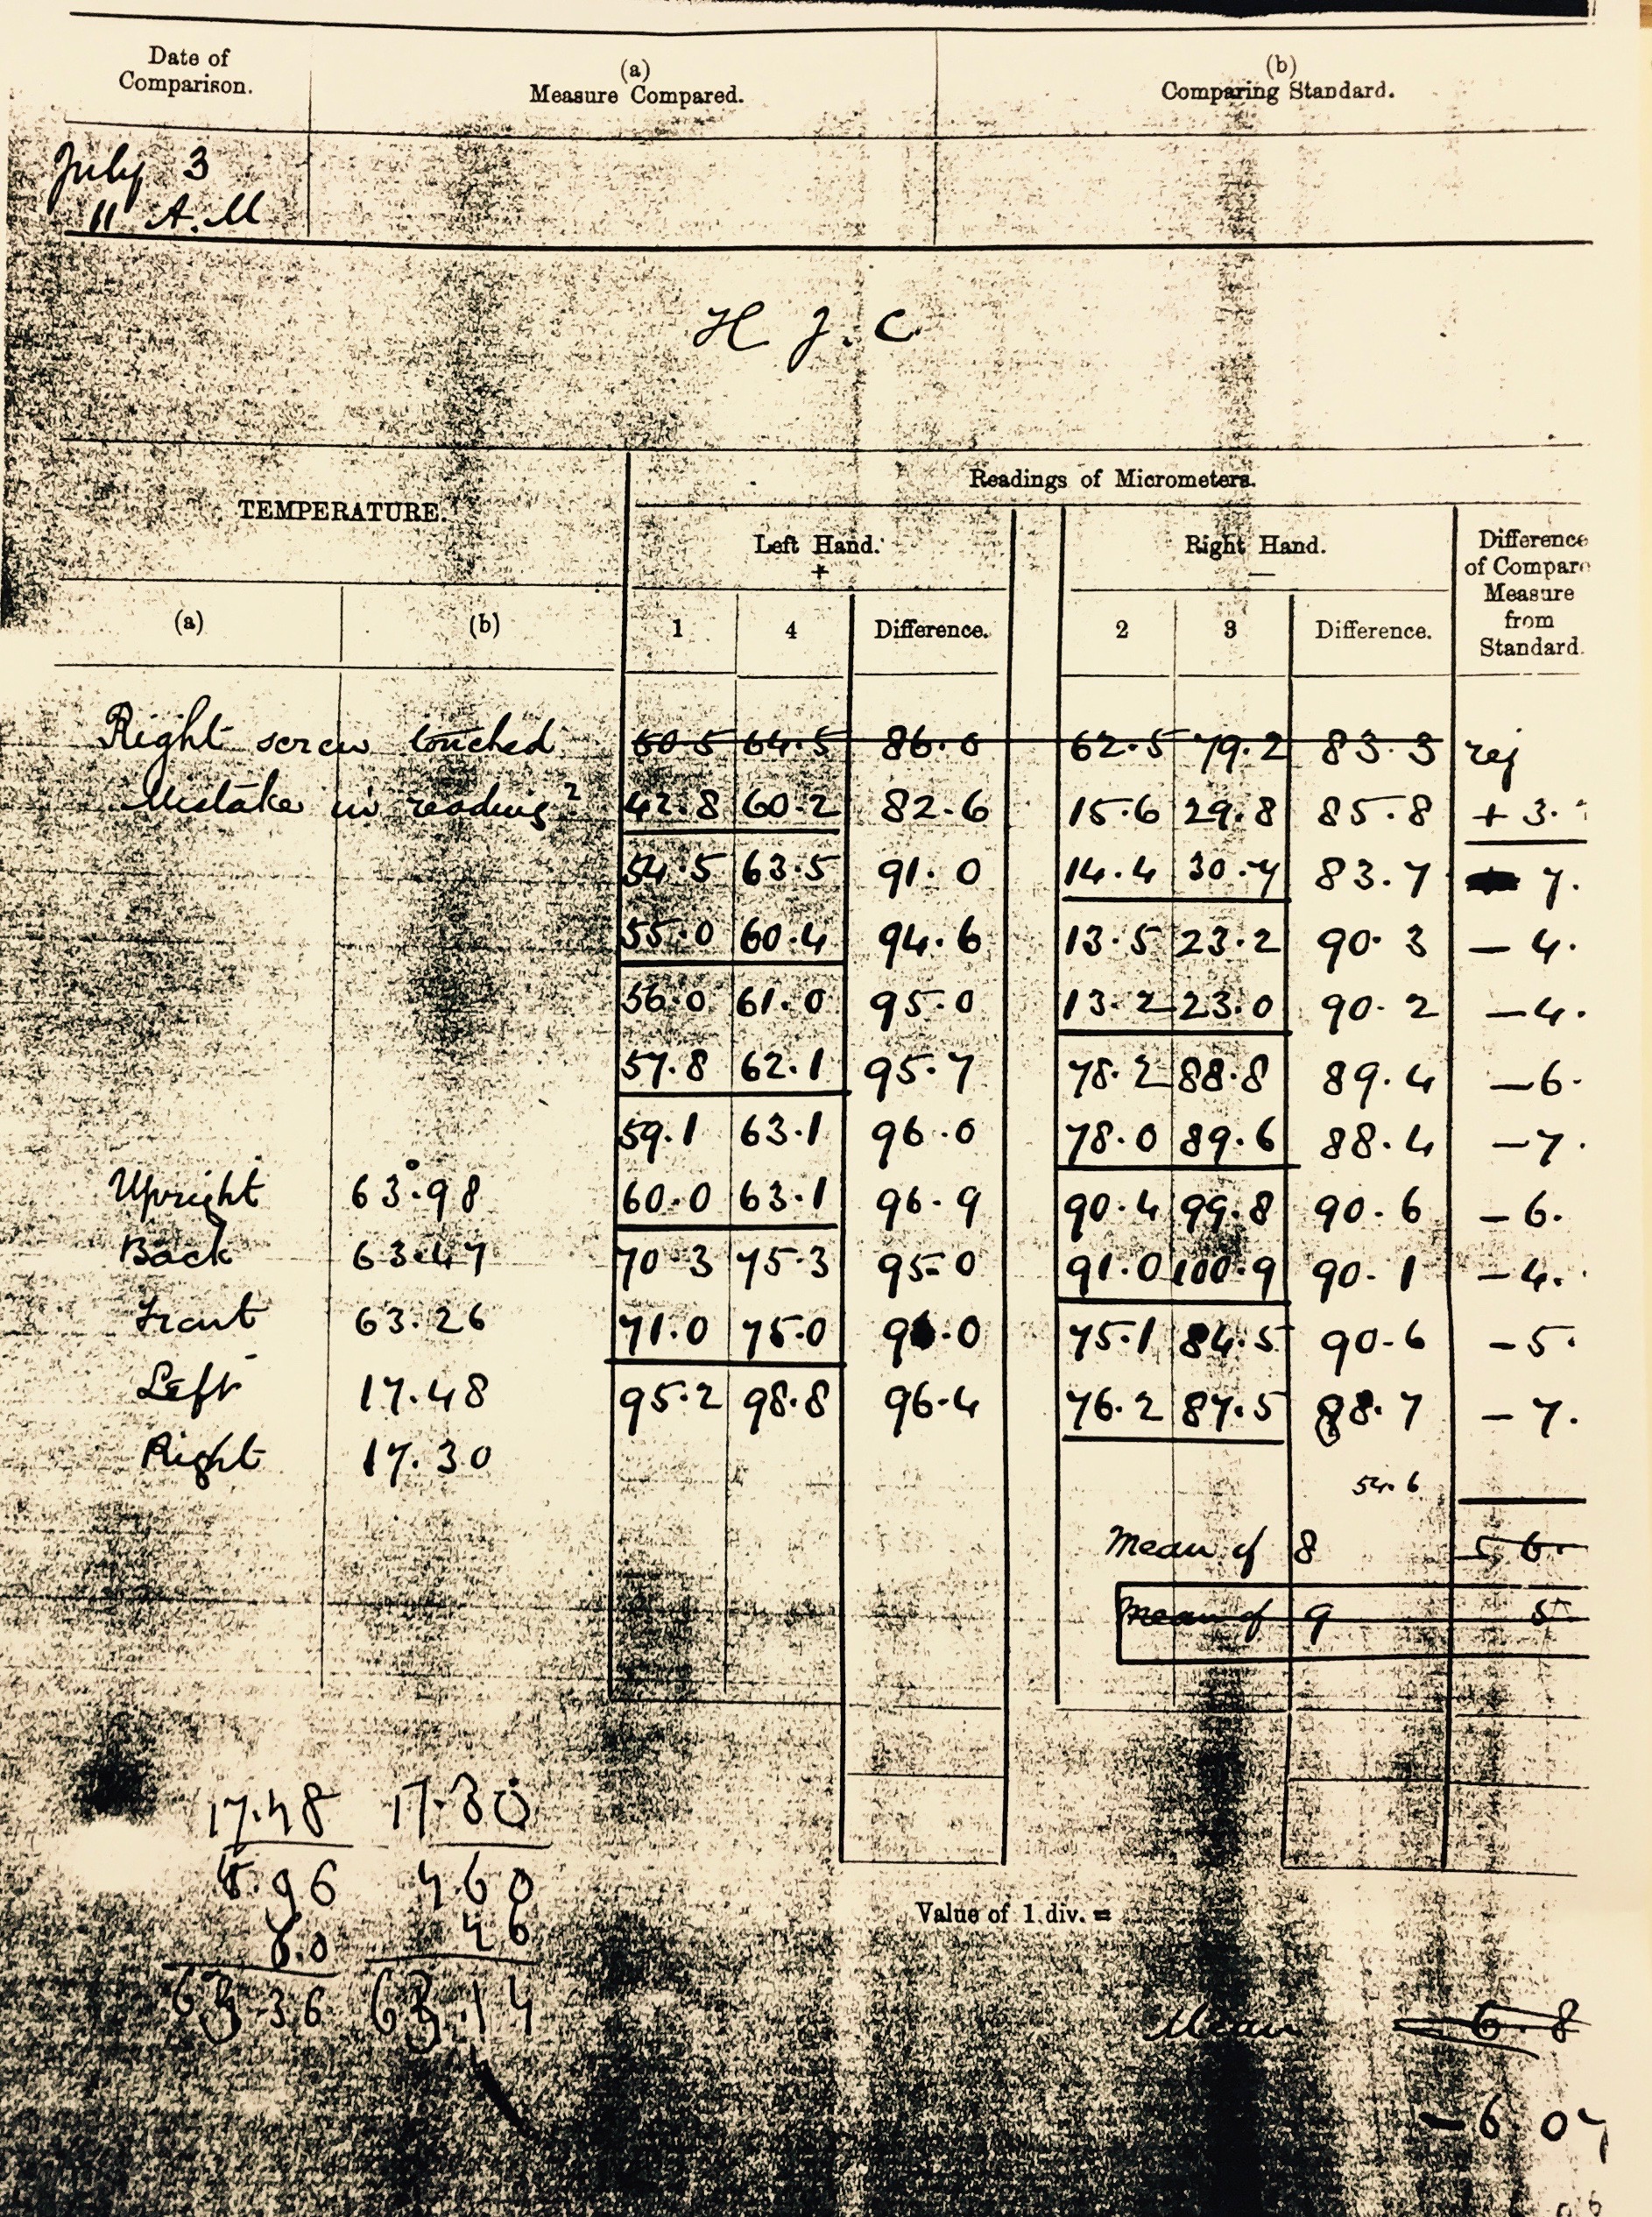 Date of Comparison. (a) Measure Compared. (b) Comparing Standard.
July 3
11 A.M
H J. C
TEMPERATURE. Readings of Micrometers.
Left Hand. + Right Hand. — Difference of Compare Measure from Standard.
(a) (b) 1 4 Difference. 2 3 Difference.
Right screw touched 50.5 64.5 86.0 62.5 79.2 83.3 rej
Mistake in reading? 42.8 60.2 82.6 15.6 29.8 85.8 + 3.
54.5 63.5 91.0 14.4 30.7 83.7 7.
55.0 60.4 94.6 13.5 23.2 90.3 – 4.
56.0 61.0 95.0 13.2 23.0 90.2 – 4.
57.8 62.1 95.7 78.2 88.8 89.4 – 6.
59.1 63.1 96.0 78.0 89.6 88.4 – 7.
Upright 63°.98 60.0 63.1 96.9 90.4 99.8 90.6 – 6.
Back 63.47 70.3 75.3 95.0 91.0 100.9 90.1 – 4.
Front 63.26 71.0 75.0 96.0 75.1 84.5 90.6 – 5.
Left 17.48 95.2 98.8 96.4 76.2 87.5 88.7 – 7.
Right 17.30
54.6
Mean of 8
Mean of 9 5
17.48 17.30
.96 4.60
.0 46
63.36 63.14
Value of 1 div. =
Mean – 6.8
– 6.07